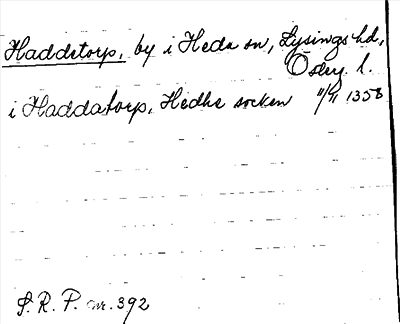 Haddstorp, by i Heda sn, Lysings hd,
Östg. l.
i Haddatorp, Hedhe socken 11/11 1358
S. R. P. nr. 392